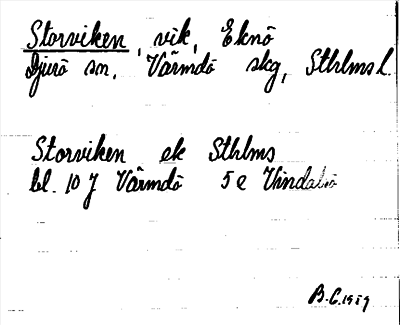 Storviken, vik, Eknö
Djurö sn, Värmdö skg, Sthlms l.
Storviken ek Sthlms
bl. 10 J Värmdö 5 e Vindalsö
B.C. 1959